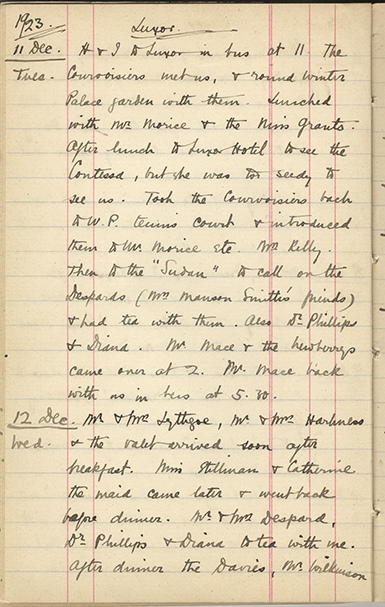 1923. Luxor.
11 Dec. H & I to Luxor in bus at 11. The
Tues. Courvoisiers met us, & round Winter
Palace garden with them. Lunched
with Mr Morice & the Miss Grants.
After lunch to Luxor Hotel to see the
but she was too seedy to
see us. Took the Courvoisiers back
to W.P. tennis court & introduced
them to Mr Morice etc. Mrs Kelly.
Then to the "Sudan" to call on the
Despards (Mrs Manson Smith's friends)
& had tea with them. Also Dr Phillips
& Diana. Mr Mace & the Newberrys
came over at 2. Mr Mace back
with us in bus at 5.30.
12 Dec. Mr & Mrs Lythgoe, Mr & Mrs Harkness
Wed. & the valet arrived soon after
breakfast. Miss Stillman & Catherine
the maid came later & went back
before dinner. Mr & Mrs Despard,
Dr Phillips & Diana to tea with me.
After dinner the Davies, Mr Wilkinson